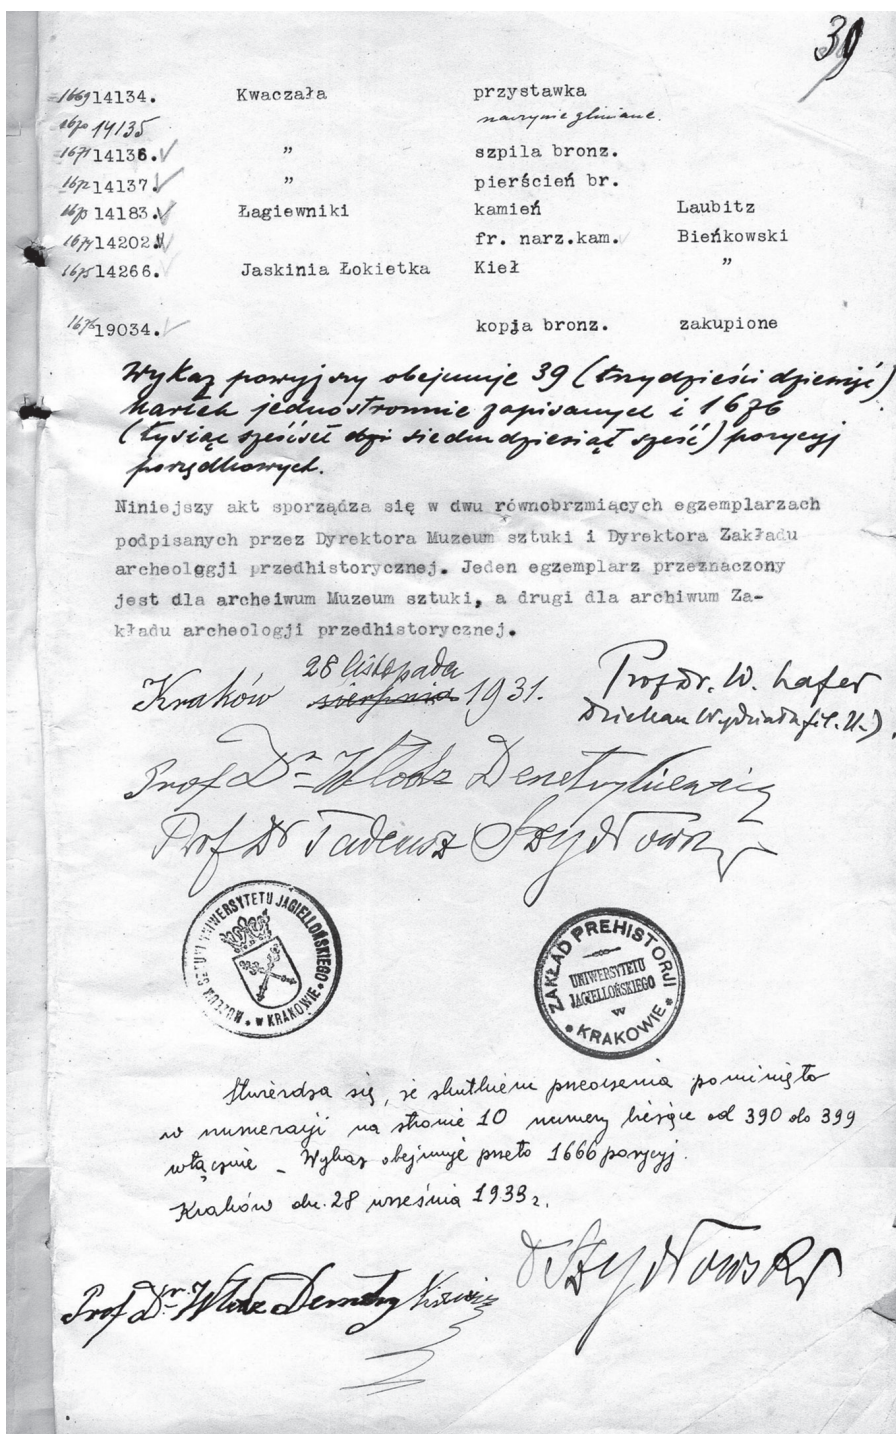 39
1669 14134. Kwaczała przystawka
1670 14135 naczynie gliniane.
1671 14136. " szpila bronz.
1672 14137. " pierścień br.
1673 14183. Łagiewniki kamień Laubitz
1674 14202. fr. narz.kam. Bieńkowski
1675 14266. Jaskinia Łokietka Kieł "
1676 19034. kopja bronz. zakupione
Wykaz powyższy obejmuje 39 (trzydzieści dziewięć)
kartek jednostronnie zapisanych i 1676
(tysiąc sześćset siedmdziesiąt sześć) pozycyj
porządkowych.
Niniejszy akt sporządza się w dwu równobrzmiących egzemplarzach
podpisanych przez Dyrektora Muzeum sztuki i Dyrektora Zakładu
archeologji przedhistorycznej. Jeden egzemplarz przeznaczony
jest dla archeiwum Muzeum sztuki, a drugi dla archiwum Za-
kładu archeologji przedhistorycznej.
28 listopada
Kraków sierpnia 1931.
Prof Dr. W. Szafer
Dziekan Wydziału fil. U.J.
Prof Dr Włodz Demetrykiewicz
Prof Dr Tadeusz Szydłowski
MUZEUM SZTUKI UNIWERSYTETU JAGIELLOŃSKIEGO • W KRAKOWIE •
ZAKŁAD PREHISTORJI
UNIWERSYTETU
JAGIELLOŃSKIEGO
w
• KRAKOWIE •
Stwierdza się, że skutkiem przeoczenia pominięto
w numeracji na stronie 10 numery bieżące od 390 do 399
włącznie – Wykaz obejmuje przeto 1666 pozycyj.
Kraków dn. 28 września 1933 r.
Szydłowski
Prof Dr. Włodz Demetrykiewicz